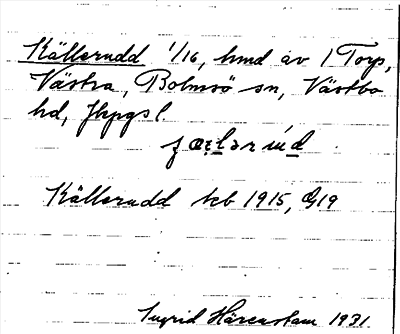 Källerudd 1/16, hmd av 1 Torp,
Västra, Bolmsö sn, Västbo
hd, Jkpgs l.
Källerudd keb 1915, G19
Ingrid Härenstam 1931